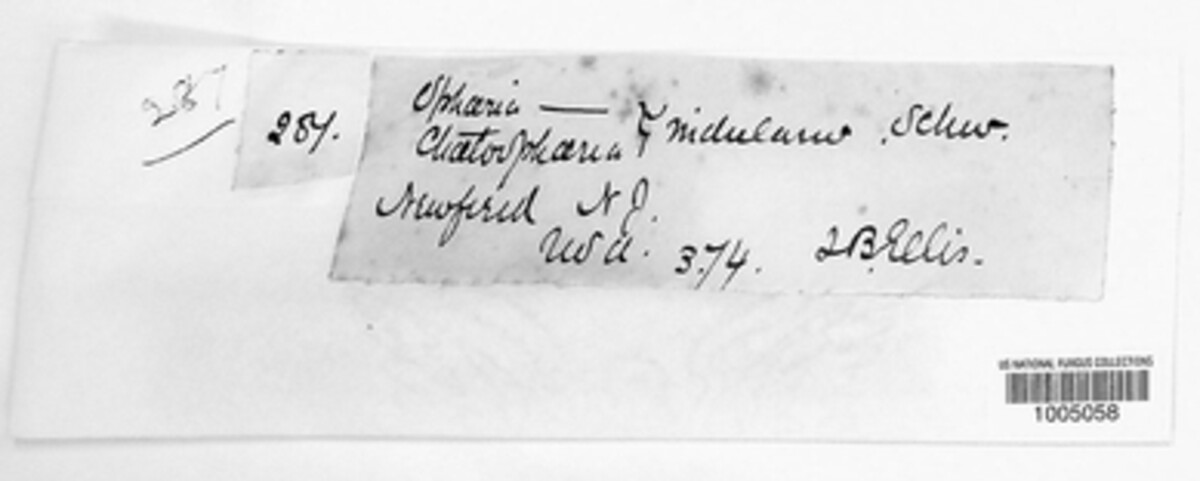 287
287.
Sphæria — } nidulans . Schw.
Chætosphæria
Newfield N J.
3.74. J B. Ellis.
US NATIONAL FUNGUS COLLECTIONS
1005058